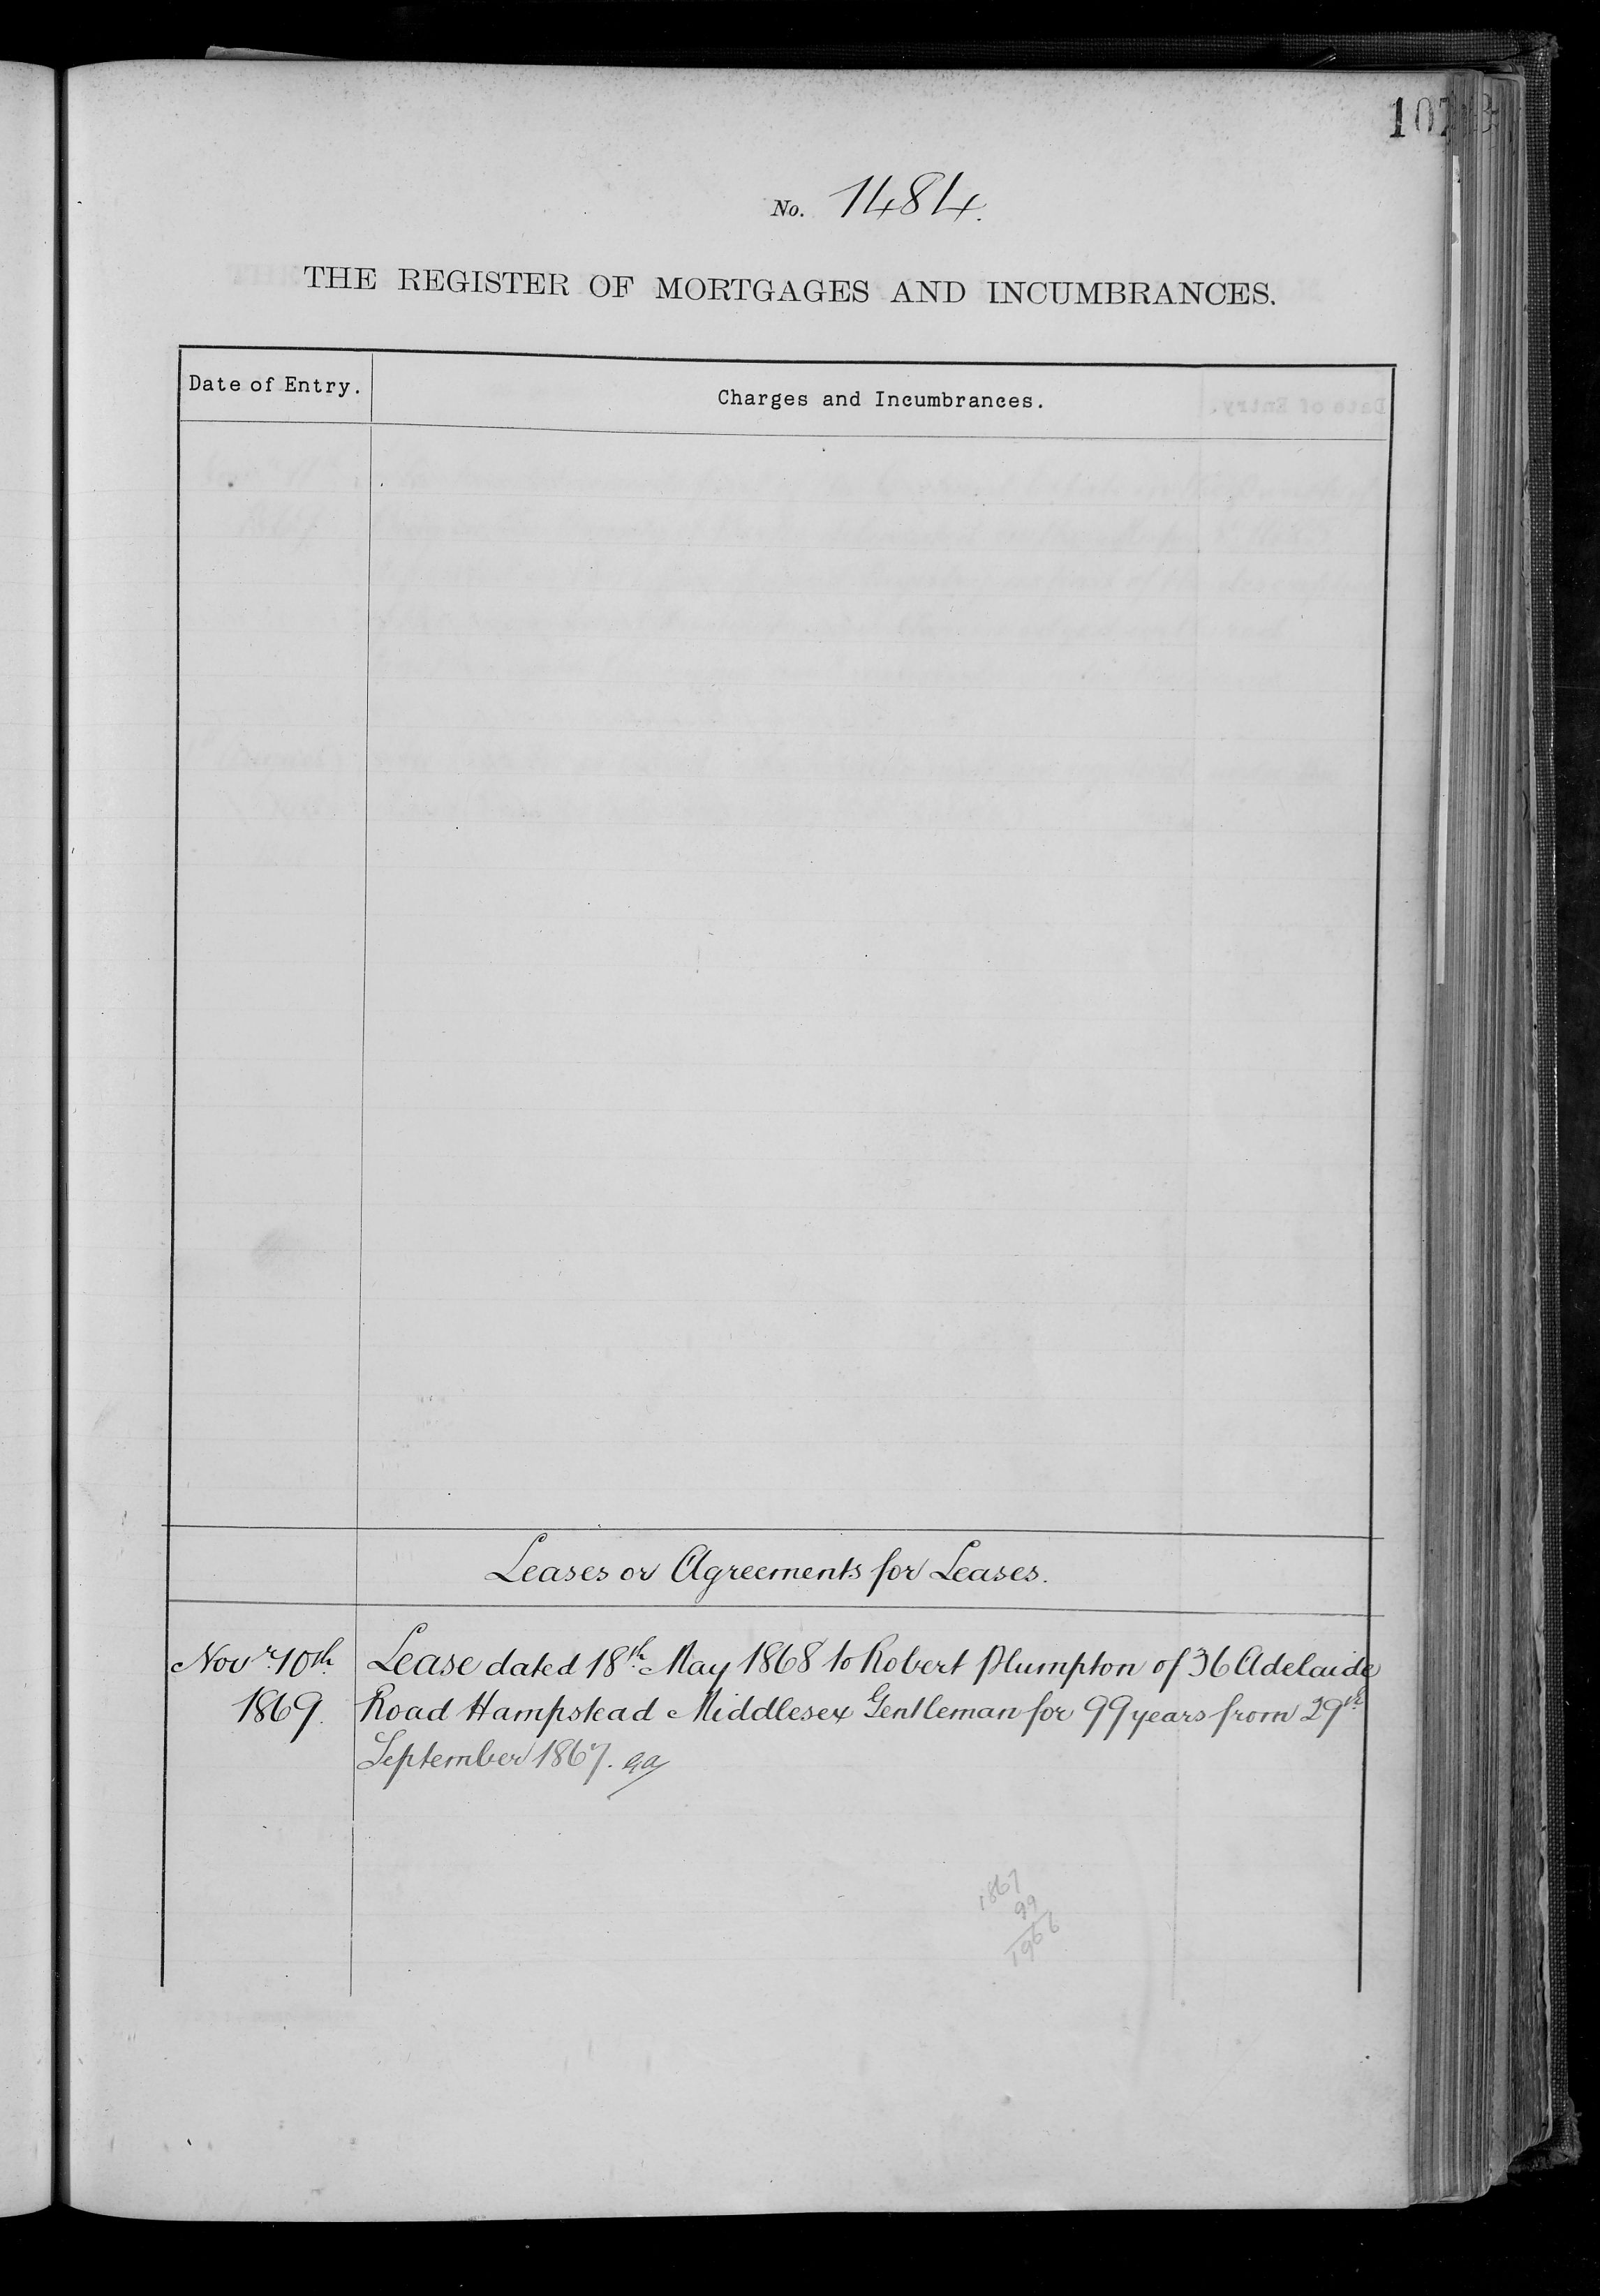 No. 1484.
THE REGISTER OF MORTGAGES AND INCUMBRANCES.
Date of Entry.
Charges and Incumbrances.
Leases or Agreements for Leases.
Novr. 10th. 1869.
Lease dated 18th. May 1868 to Robert Plumpton of 36 Adelaide
Road Hampstead Middlesex Gentleman for 99 years from 29th.
September 1867.
1867
99
1966